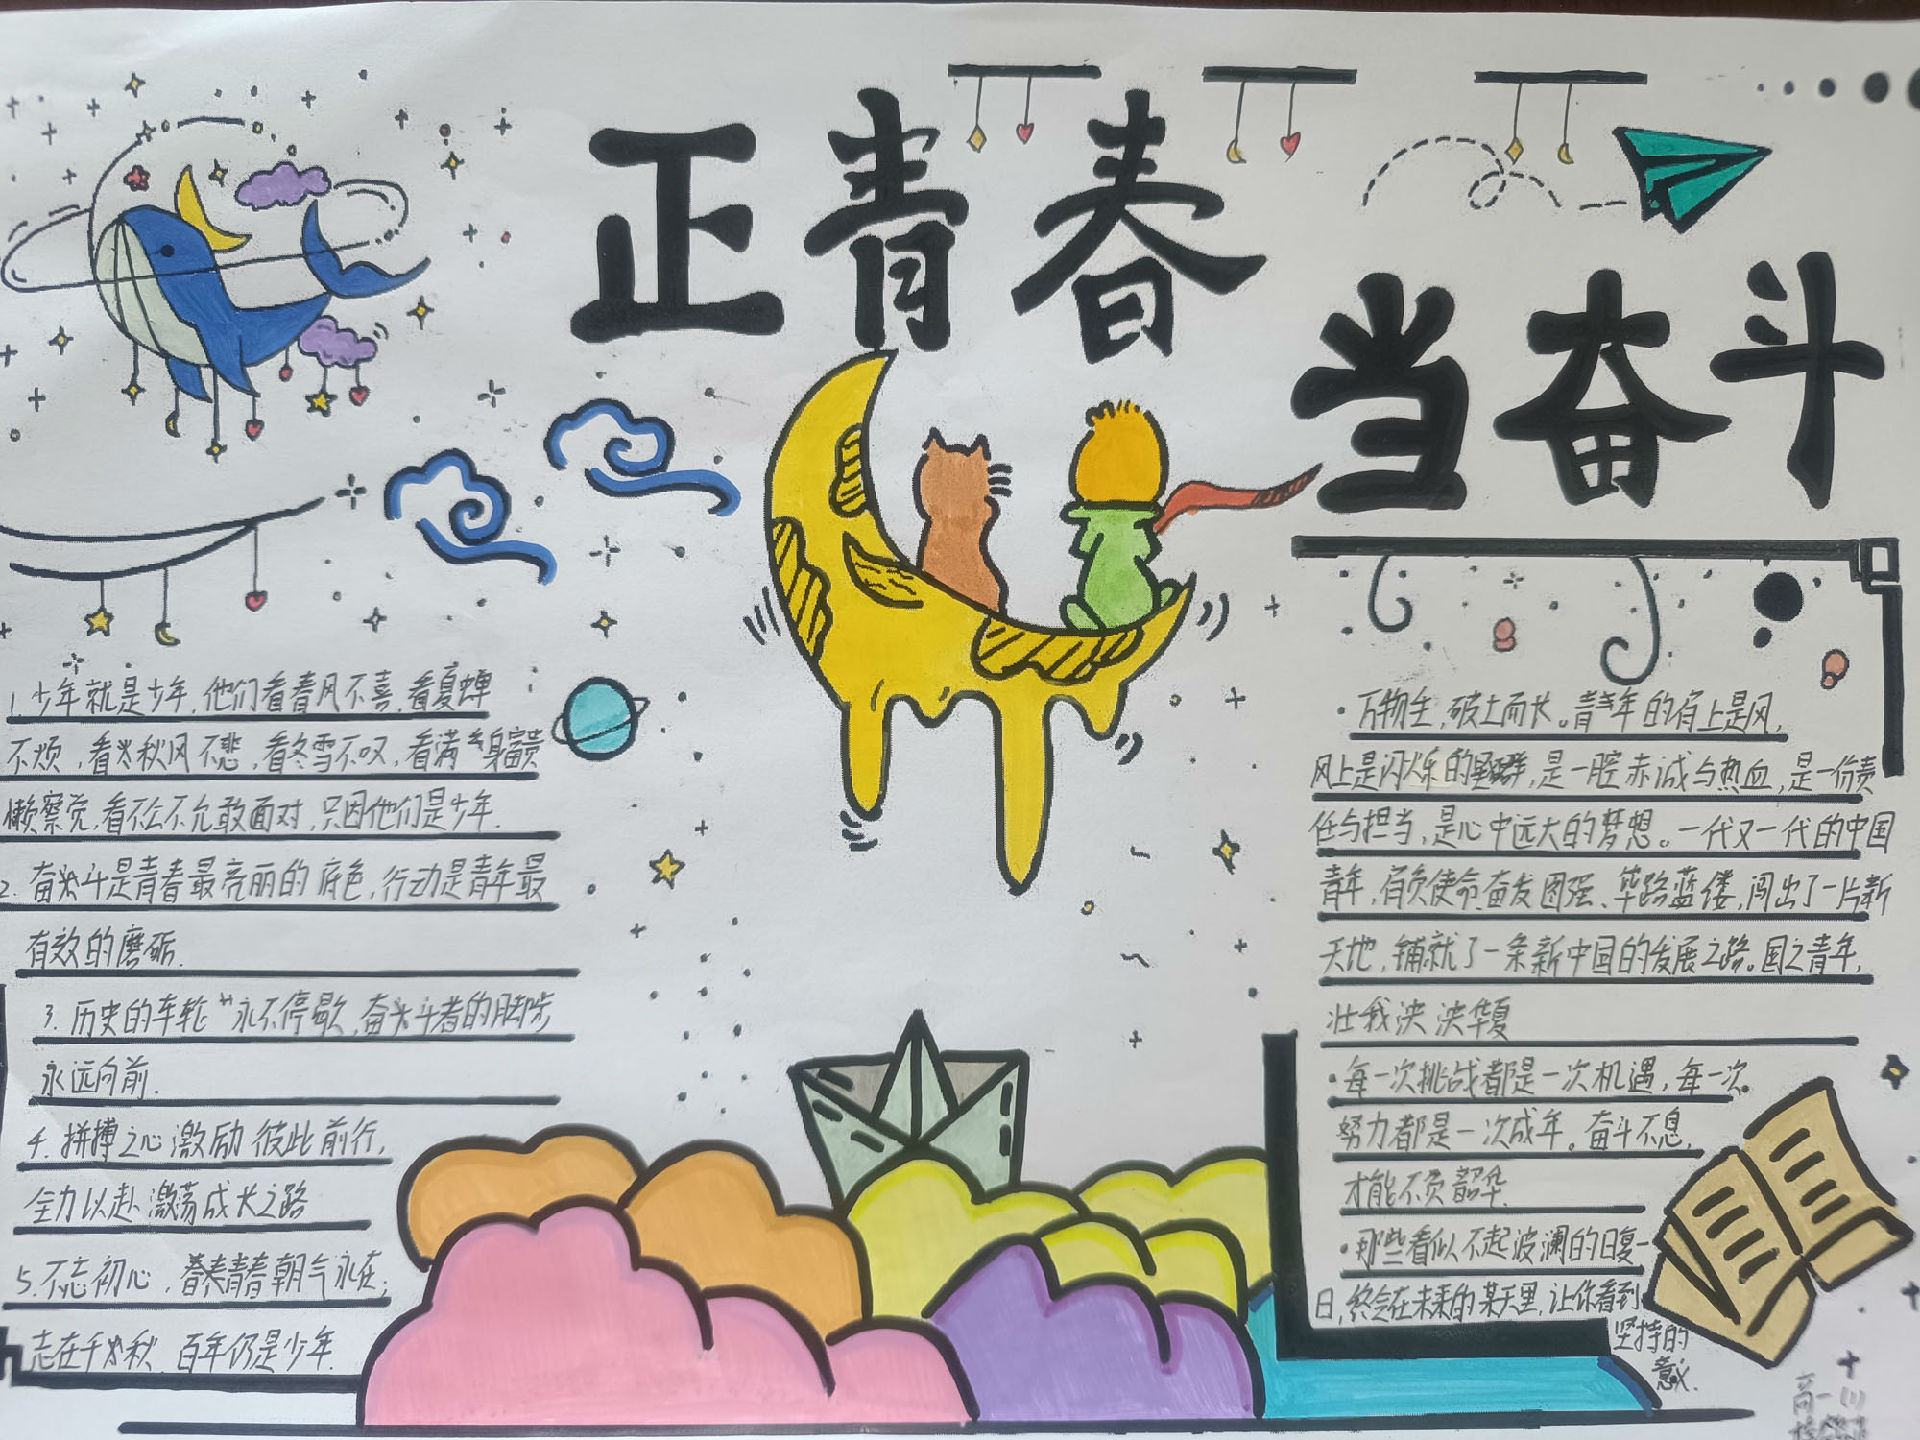 正青春
当奋斗
1.少年就是少年,他们看春风不喜,看夏蝉
不烦,看秋风不悲,看冬雪不叹,看满身富贵
懒察觉,看不公不允敢面对,只因他们是少年.
2.奋斗是青春最亮丽的底色,行动是青年最
有效的磨砺.
3.历史的车轮"永不停歇,奋斗者的脚步
永远向前.
4.拼搏之心激励彼此前行,
全力以赴激荡成长之路
5.不忘初心,青春朝气永在;
志在千秋 百年仍是少年.
·万物生,破土而长。青年的肩上是风,
风上是闪烁的星群,是一腔赤诚与热血,是一份责
任与担当,是心中远大的梦想。一代又一代的中国
青年,肩负使命,奋发图强、筚路蓝缕,闯出了一片新
天地,铺就了一条新中国的发展之路。国之青年,
壮我泱泱华夏
·每一次挑战都是一次机遇,每一次
努力都是一次成年。奋斗不息,
才能不负韶华.
·那些看似不起波澜的日复一
日,终会在未来的某天里,让你看到
坚持的
意义.
高一(1)